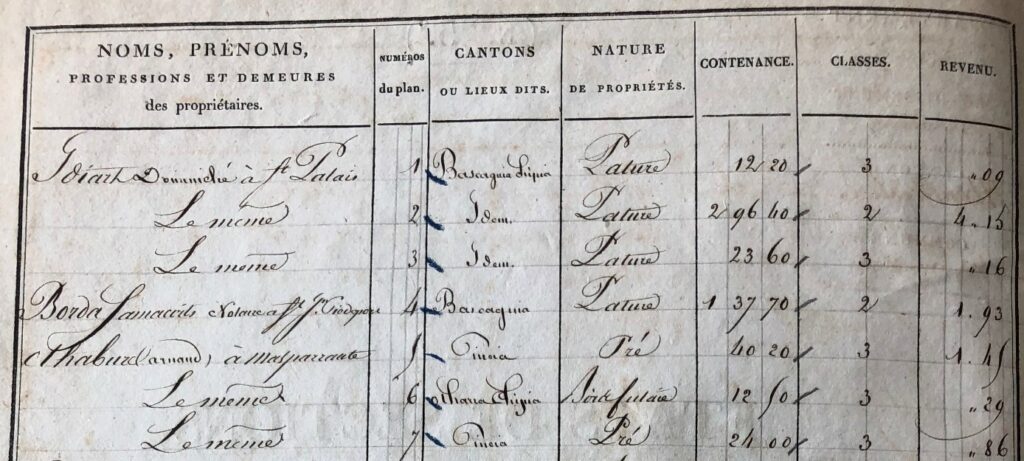 NOMS, PRÉNOMS, PROFESSIONS ET DEMEURES des propriétaires. NUMÉROS du plan. CANTONS OU LIEUX DITS. NATURE DE PROPRIÉTÉS. CONTENANCE. CLASSES. REVENU.
Idiart à St Palais 1 Pature 12 20 3 " 09
Le meme 2 Idem. Pature 2 96 40 2 4. 15
Le meme 3 Idem. Pature 23 60 3 " 16
Borda Notaire a St 4 Bascaguia Pature 1 37 70 2 1. 93
(arnaud) à Masparraute 5 Pré 40 20 3 1. 45
Le meme 6 futaie 12 50 3 " 29
Le meme 7 Pré 24 00 3 " 86